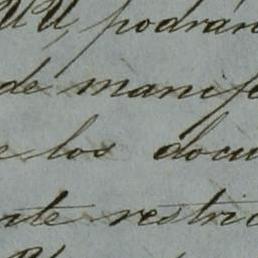 UU, podrán
de manife
los docu
te restric